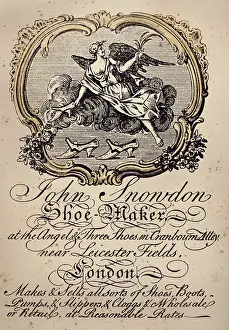 John Snowdon
Shoe-Maker
at the Angel & Three Shoes in Cranbourn Alley,
near Leicester Fields,
London.
Makes & Sells all sorts of Shoes, Boots,
Pumps, & Slippers, & Cloggs & Wholesale
or Retail, at Reasonable Rates.